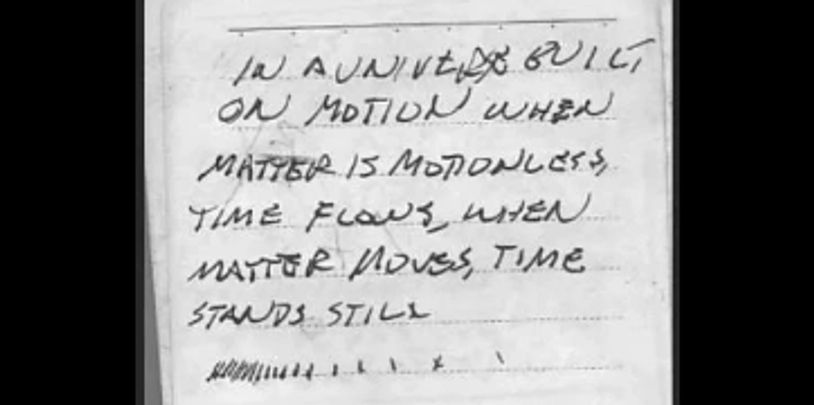 IN A UNIVERSE BUILT
ON MOTION WHEN
MATTER IS MOTIONLESS,
TIME FLOWS, WHEN
MATTER MOVES, TIME
STANDS STILL